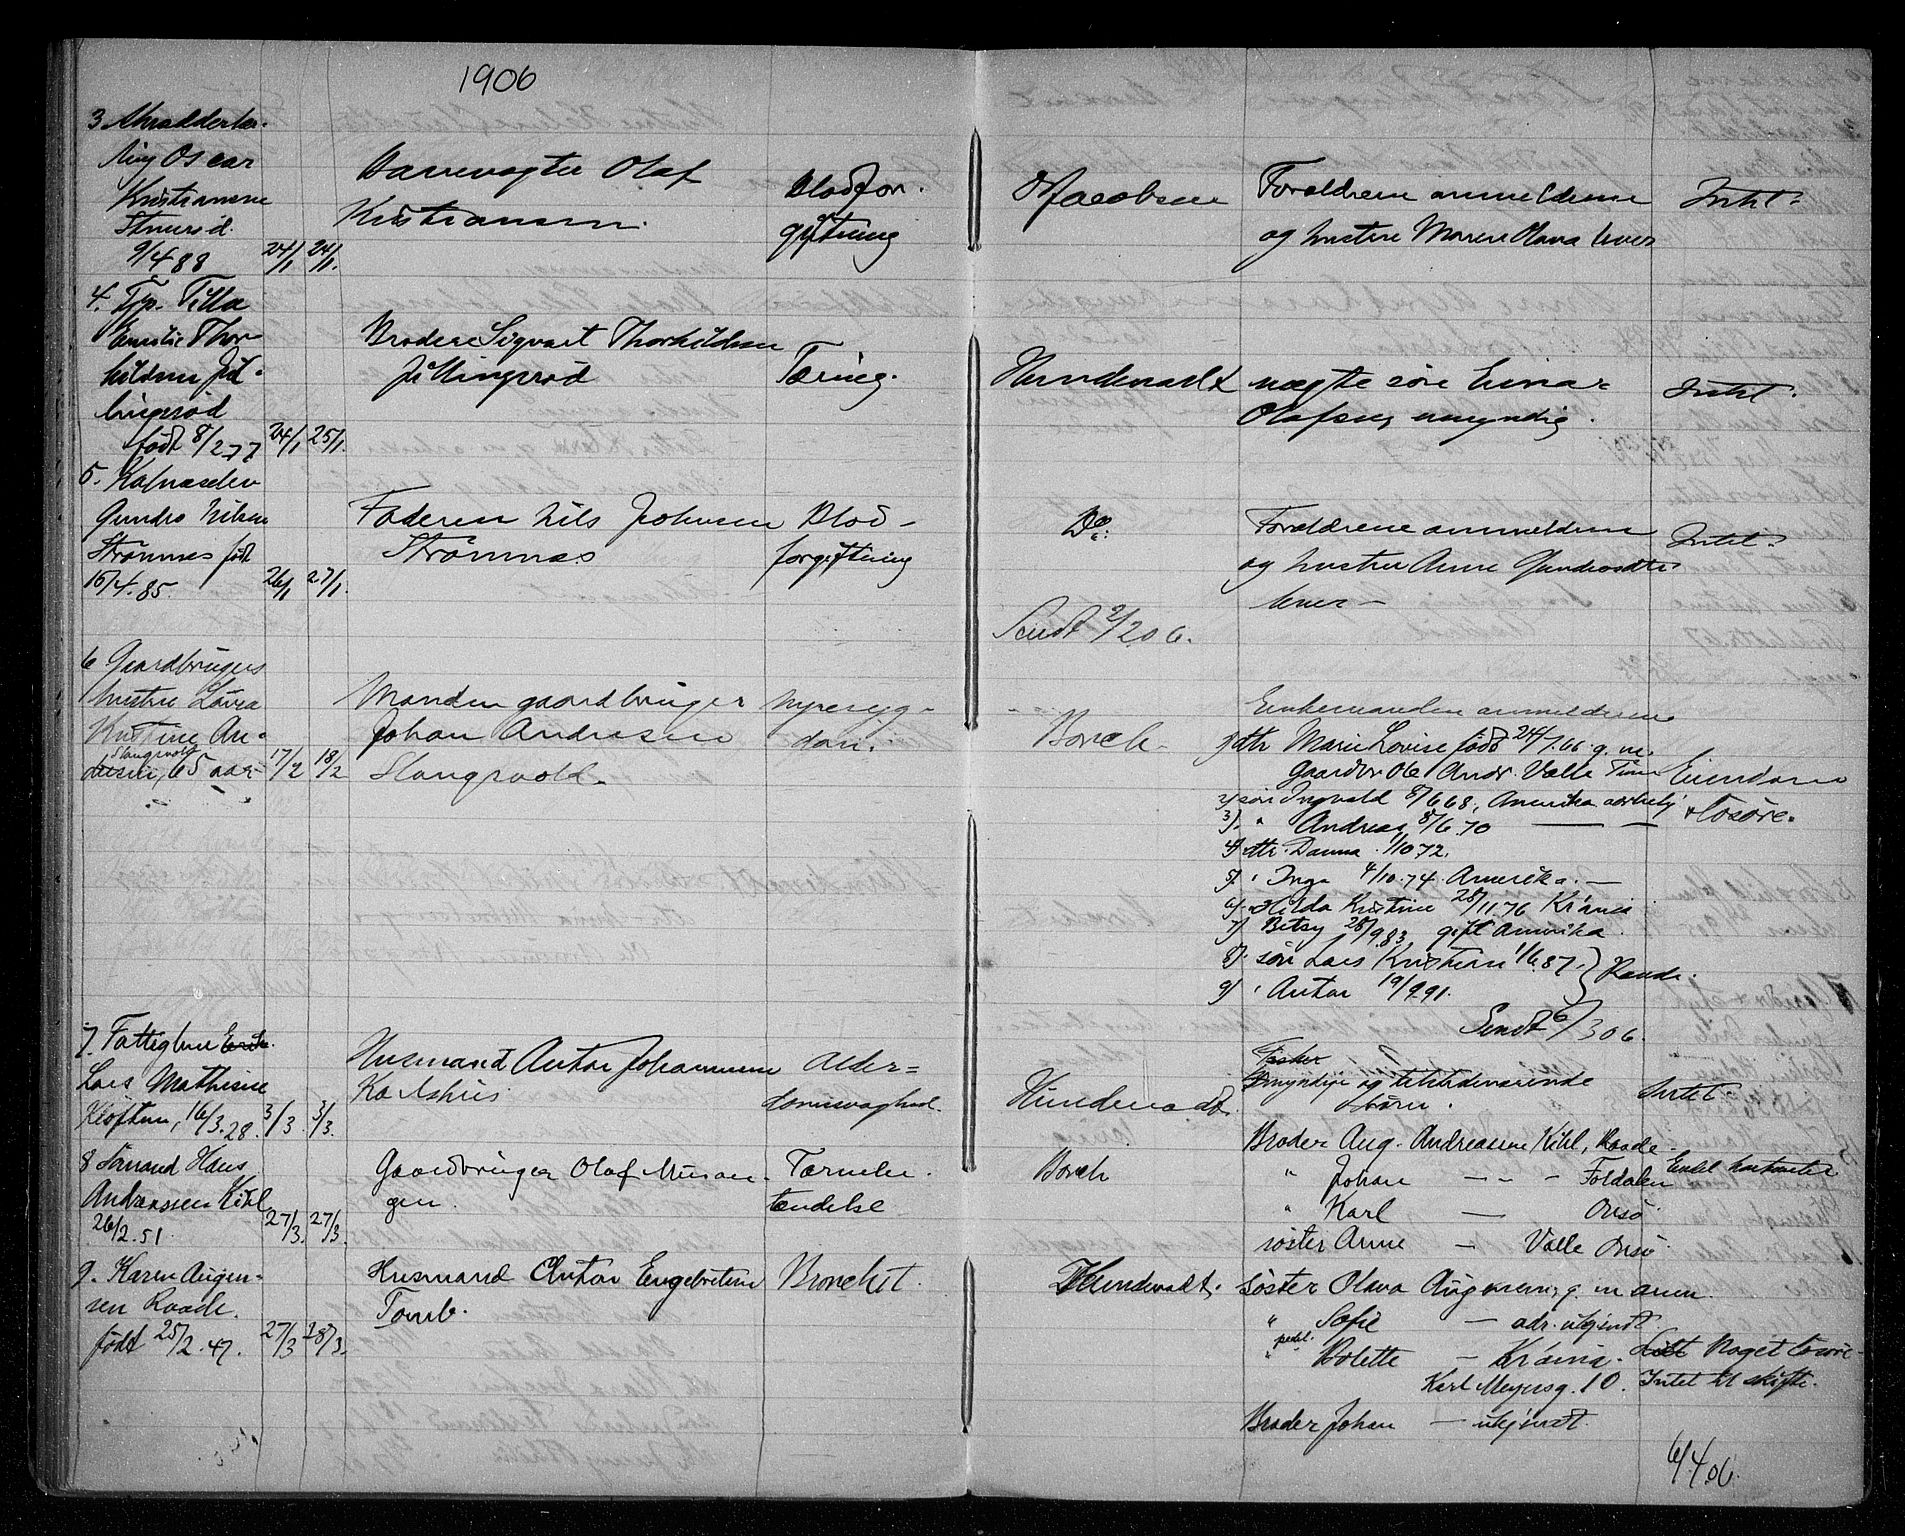 1906
3 Skrædderlær-
ling Oscar
Kristiansen
9/4 88 24/1 24/1.
Banevogter Olaf
Kristiansen.
Blodfor-
giftning
O Jacobsen
Forældrene anmelderen
og hustru Maren Olava lever
Intet.
4. Tjp. Tilla
Emilie Thor-
kildsen Jil-
lingsrød
født 8/2 77 24/1 25/1.
Broderen Sigvart Thorkildsen
Jillingsrød
Tæring.
Hundevadt
uægte søn Einar
Olafsen, umyndig.
Intet.
5.
Gundro Nilsen
Strømnes født
15/4.85. 26/1 27/1.
Faderen Nils Johnsen
Strømnæs
Blod-
forgiftning
Do:
Forældrene anmelderen
og hustru Anne Gundrosdtr
lever -
Intet.
Sendt 2/2 06.
6 Gaardbrugers
hustru Lovisa
Kristine An-
Slangsvold
dresen, 65 aar 17/2 18/2
Manden gaardbruger
Johan Andresen
Slangsvold.
nyresyg-
dom.
Borch.
Enkemanden anmelderen
1) dtr Marie Lovise født 24/1.66 g. m.
Gaardbr Ole Andr. Valle Tune
2) søn Ingvald 8/6 68, Amerika
3). " Andreas 8/6.70 — —
4) dtr. Danna 1/10 72.
5) " Inga 4/10.74. Amerika. —
6). " Hilda Kristine 28/11.76 Kr.ania
7) " Betsy 28/9.83. gift Amerika.
8). søn Lars Kristian 1/6.87.
9) " Anton 19/9.91. } Raade.
Eiendom
+ løsøre.
Sendt 6/3 06.
7. Fattiglem
Lars Mathisen
Kløften, 16/3.28. 3/3. 3/3.
Husmand Anton Johannesen
Karlshus
Alder-
domssvaghed.
Hundevadt.
Myndige og tilstedeværende
børn.
Intet.
8 Sømand Hans
Andreassen Kihl
26/2.51. 27/3. 27/3.
Gaardbruger Olaf Musan-
gen.
Tarmbe-
tændelse
Borch
Broder Aug. Andreasen Kihl, Raade
" Johan — - - Foldalen
" Karl — Onsø
søster Anne — Valle Onsø
9. Karen Augen-
sen Raade.
født 25/2.47. 27/3 28/3.
Husmand Anton Engebretsen
Tomb.
Bronchit.
Hundevadt.
søster Olava Augensen, g. m anm.
" Sofie — adr. ukjendt.
" Bolette — Kr.ania.
Karl Meyersg. 10.
Broder Johan — ukjendt.
Noget løsøre-
Intet til skifte.
6/4.06.